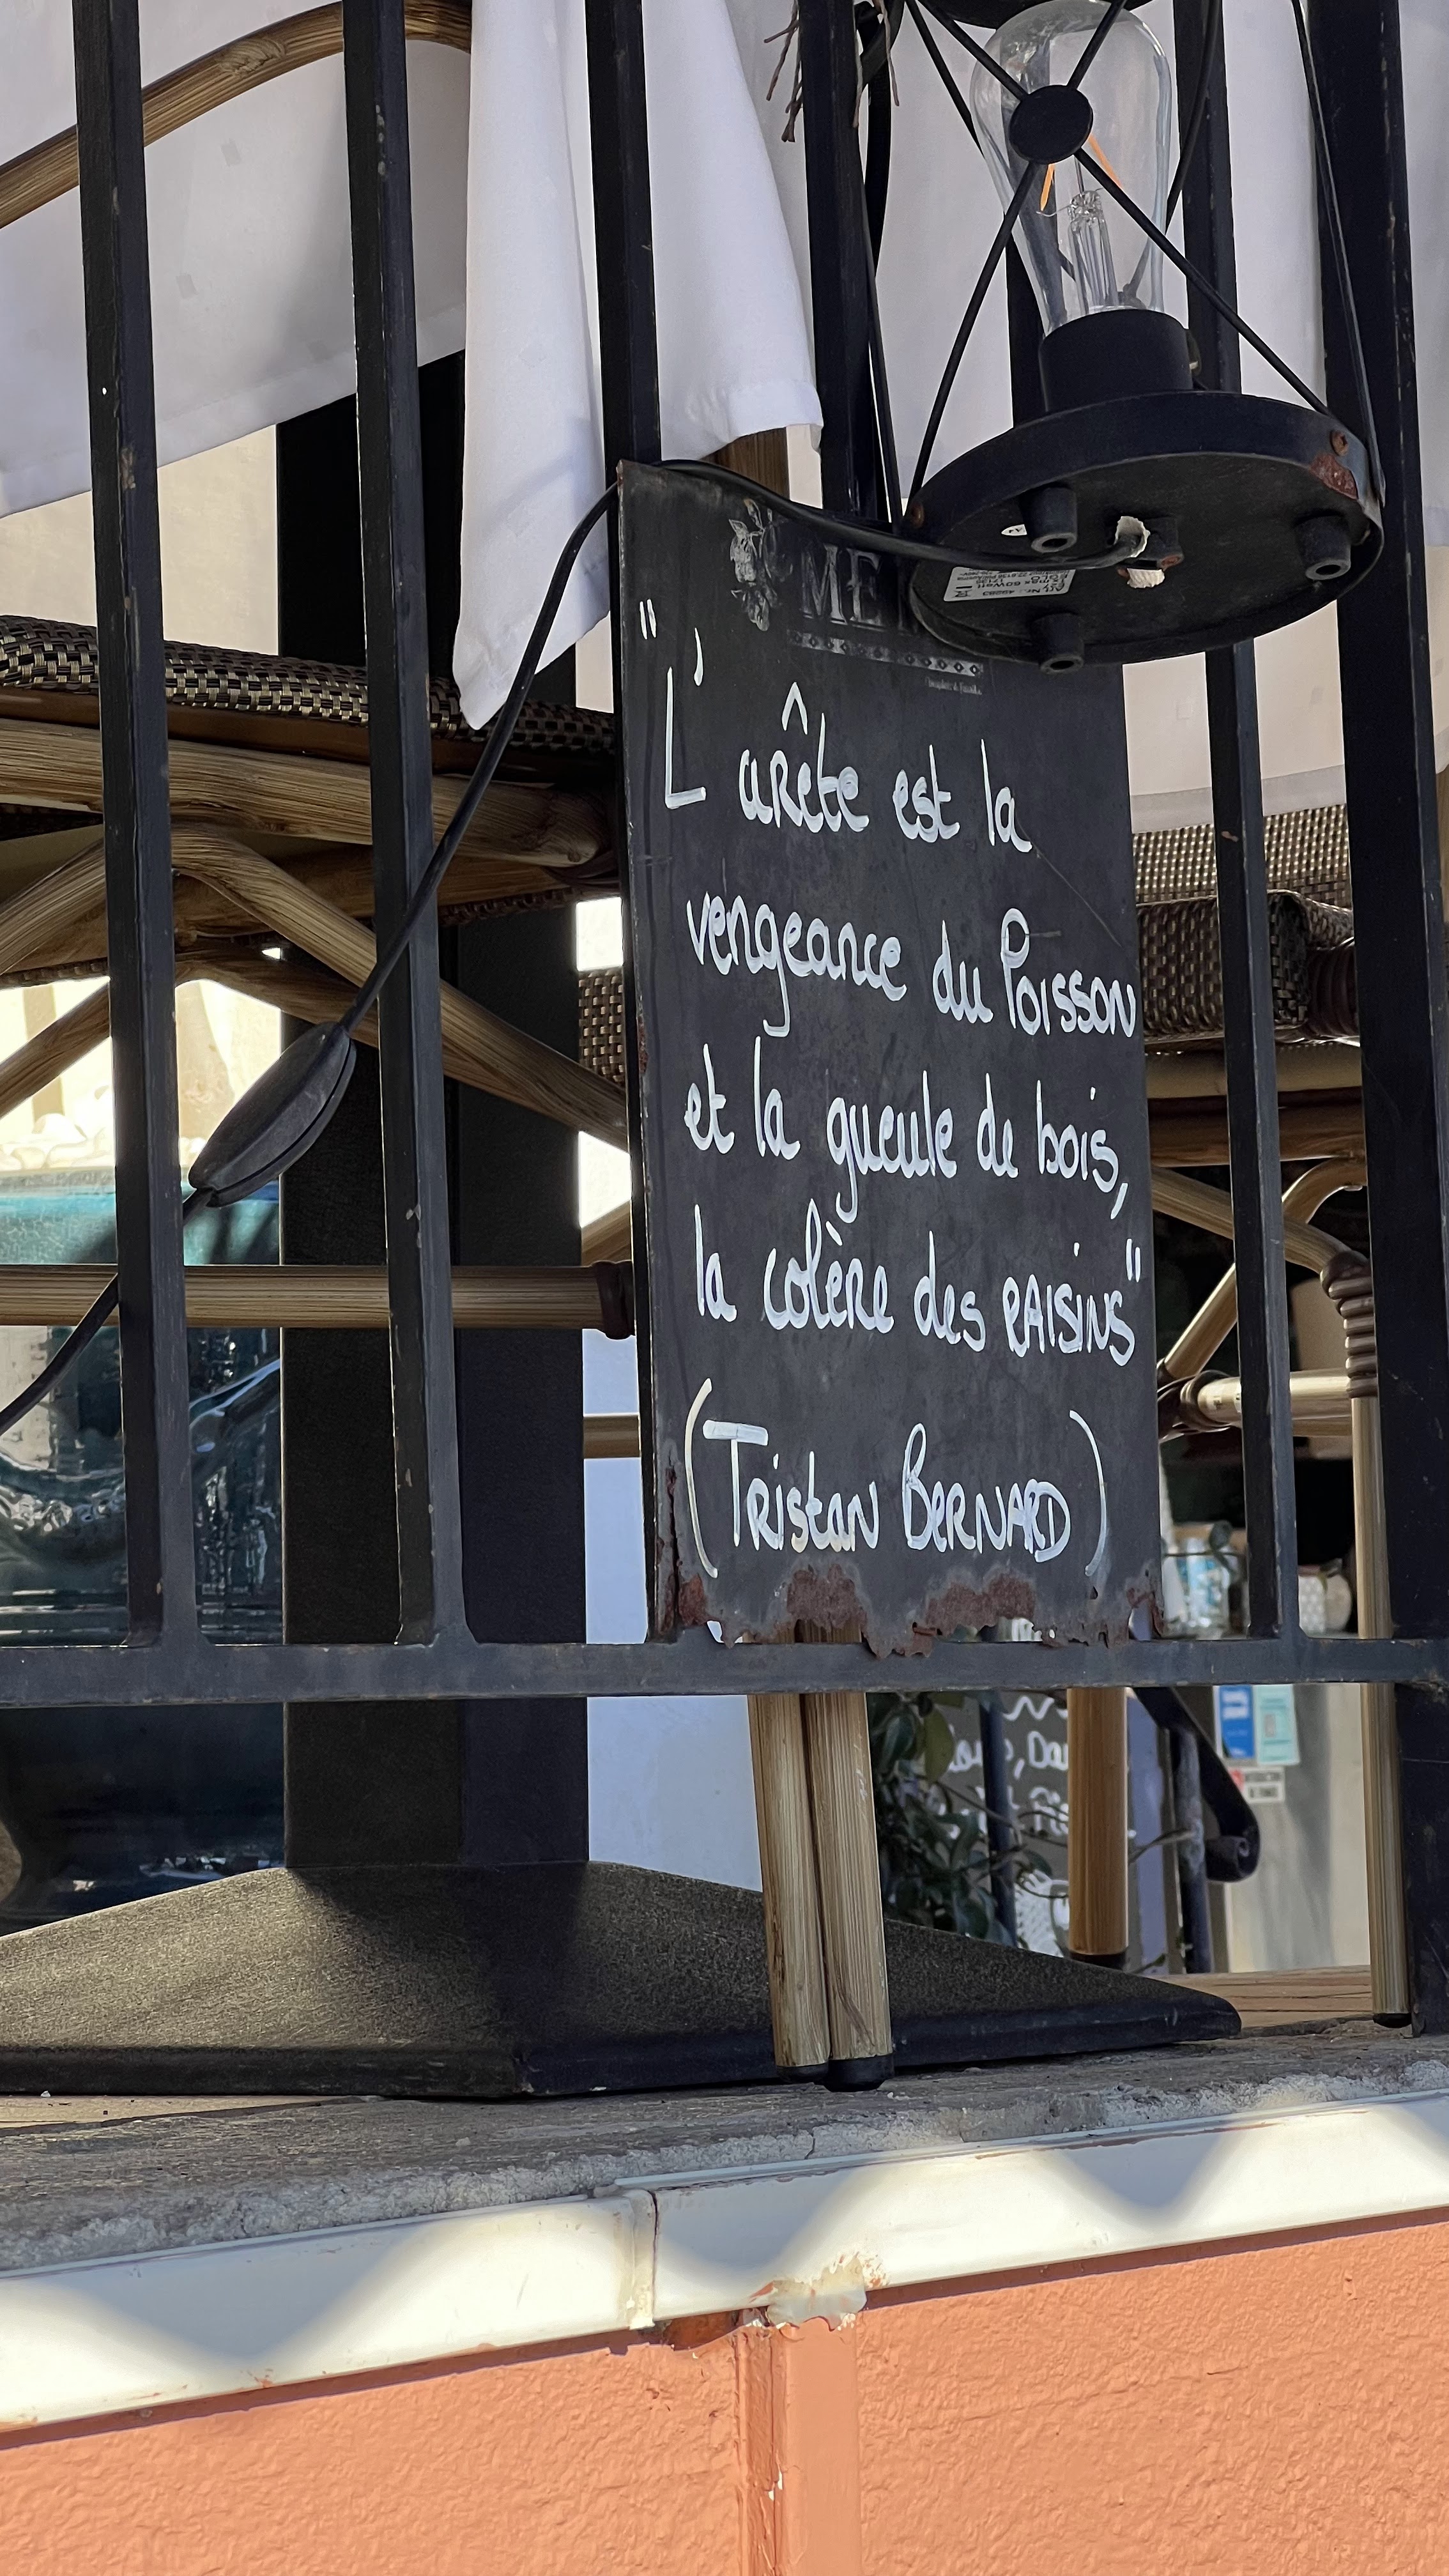 ME
"L'arête est la
vengeance du Poisson
et la gueule de bois,
la colère des RAISINS"
(Tristan BERNARD)